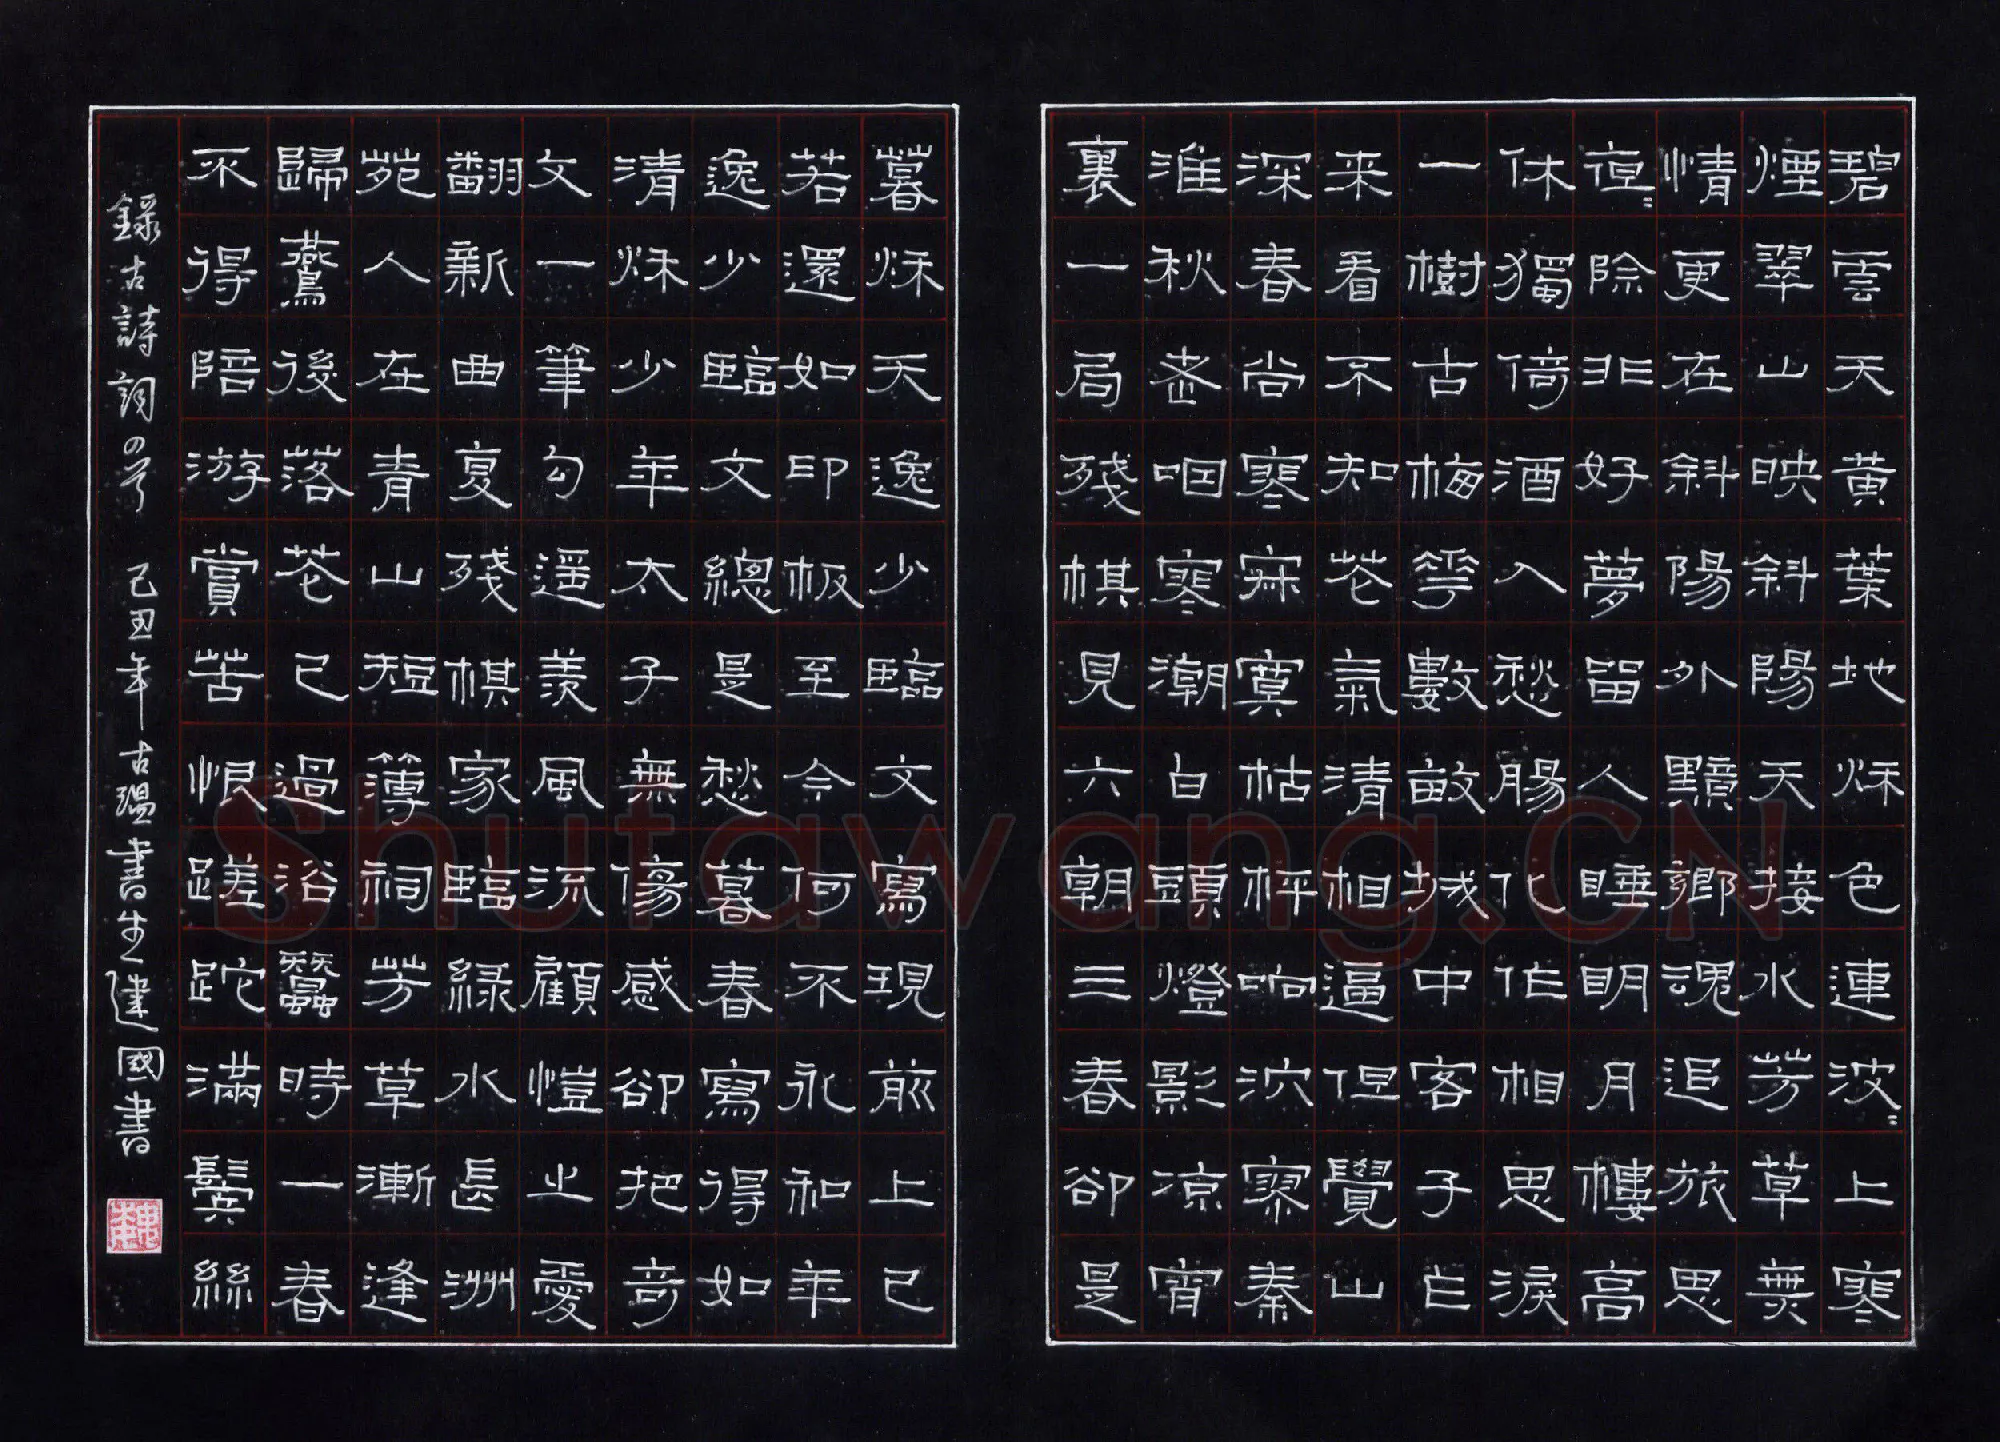 碧雲天黄葉地秌色連波〻上寒
煙翠山映斜陽天接水芳草無
情更在斜陽外黯鄉魂追旅思
夜〻除非好夢留人睡明月樓高
休獨倚酒入愁腸化作相思淚
一樹古梅花數畝城中客子乍
来看不知花氣清相逼但覺山
深春尚寒寂寞枯枰响泬寥秦
淮秋老咽寒潮白頭燈影涼宵
裏一局殘棋見六朝三春卻是
暮秌天逸少臨文寫現前上已
若還如印板至今何不永和年
逸少臨文總是愁暮春寫得如
清秌少年太子無傷感卻把奇
文一筆勾遥羨風流顧愷之愛
翻新曲复殘棋家臨綠水長洲
苑人在青山短簿祠芳草漸逢
歸燕後落花已過浴蠶時一春
不得陪游賞苦恨蹉跎滿鬢絲
錄古詩詞四首 己丑年古瑥書生建國書
Shufawang.CN